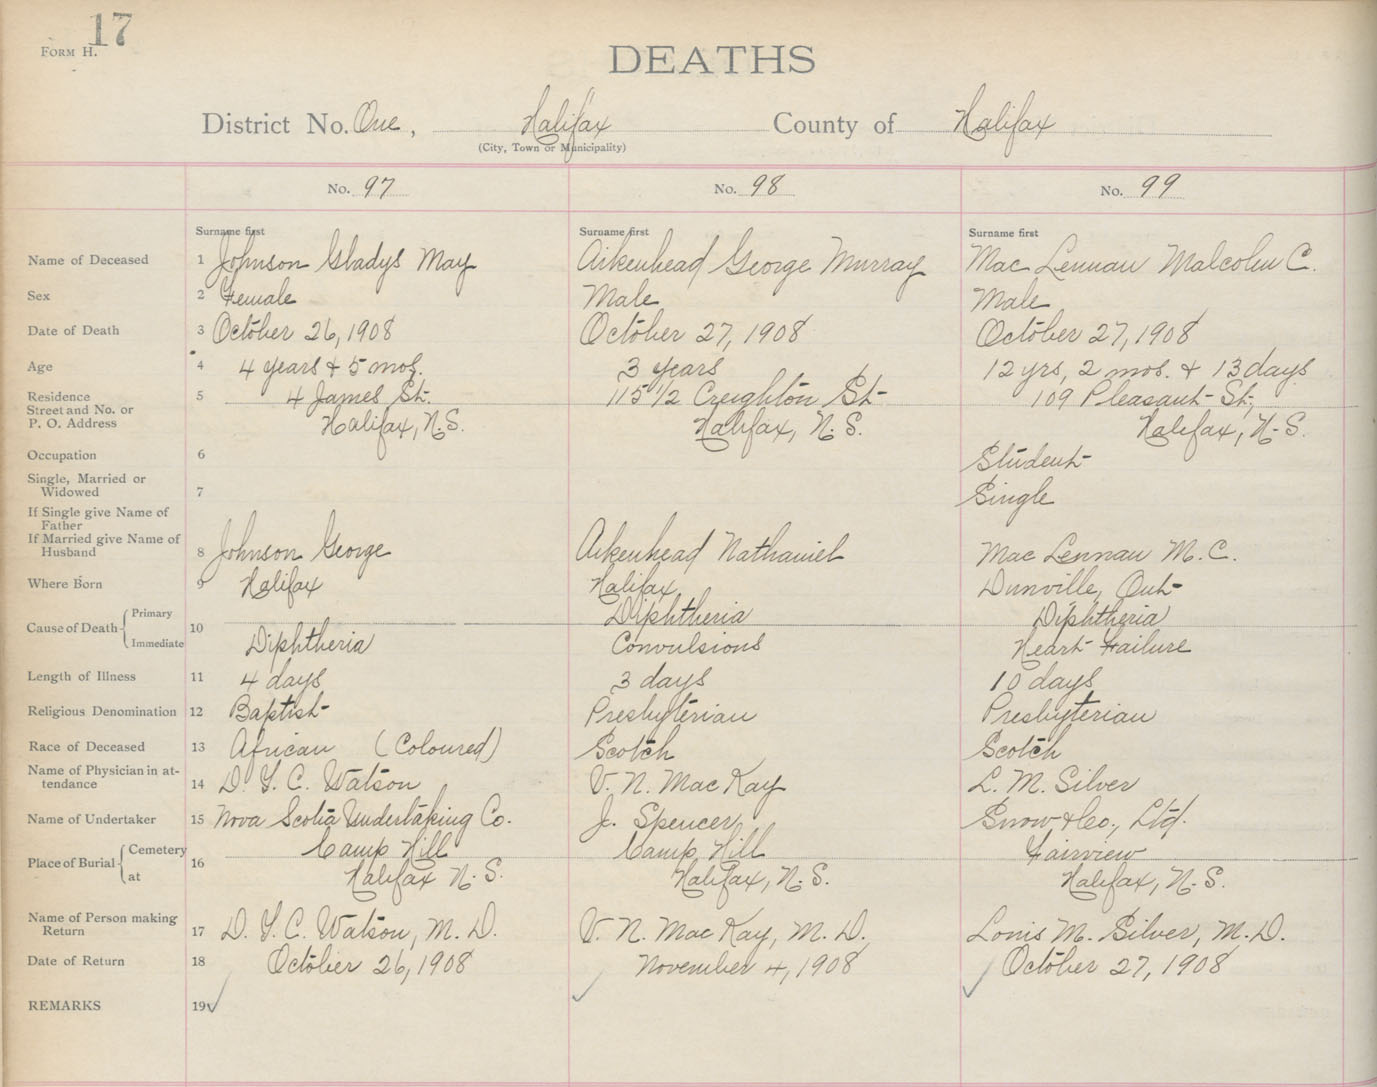 17
FORM H.
DEATHS
District No. One, Halifax County of Halifax
(City, Town or Municipality)
No. 97 No. 98 No. 99
Surname first Surname first Surname first
Name of Deceased 1 Johnson Gladys May Aikenhead George Murray Mac Lennan Malcolm C.
Sex 2 Female Male Male
Date of Death 3 October 26, 1908 October 27, 1908 October 27, 1908
Age 4 4 years & 5 mos. 3 years 12 yrs, 2 mos. & 13 days
Residence 5 4 James St. 115 1/2 Creighton St- 109 Pleasant St,
Street and No. or
P. O. Address Halifax, N.S. Halifax, N.S. Halifax, N.S.
Occupation 6 Student
Single, Married or
Widowed 7 Single
If Single give Name of
Father
If Married give Name of
Husband 8 Johnson George Aikenhead Nathaniel Mac Lennan M. C.
Where Born 9 Halifax Halifax Dunville, Ont-
Primary Diphtheria Diphtheria
Cause of Death 10
Immediate Diphtheria Convulsions Heart Failure
Length of Illness 11 4 days 3 days 10 days
Religious Denomination 12 Baptist Presbyterian Presbyterian
Race of Deceased 13 African (Coloured) Scotch Scotch
Name of Physician in at-
tendance 14 D. C. Watson V. N. MacKay L. M. Silver
Name of Undertaker 15 Nova Scotia Undertaking Co. J. Spencer Snow & Co., Ltd.
Cemetery Camp Hill Camp Hill Fairview
Place of Burial 16
at Halifax N.S. Halifax, N.S. Halifax, N.S.
Name of Person making
Return 17 D. C. Watson, M.D. V. N. MacKay, M.D. Louis M. Silver, M.D.
Date of Return 18 October 26, 1908 November 4, 1908 October 27, 1908
REMARKS 19